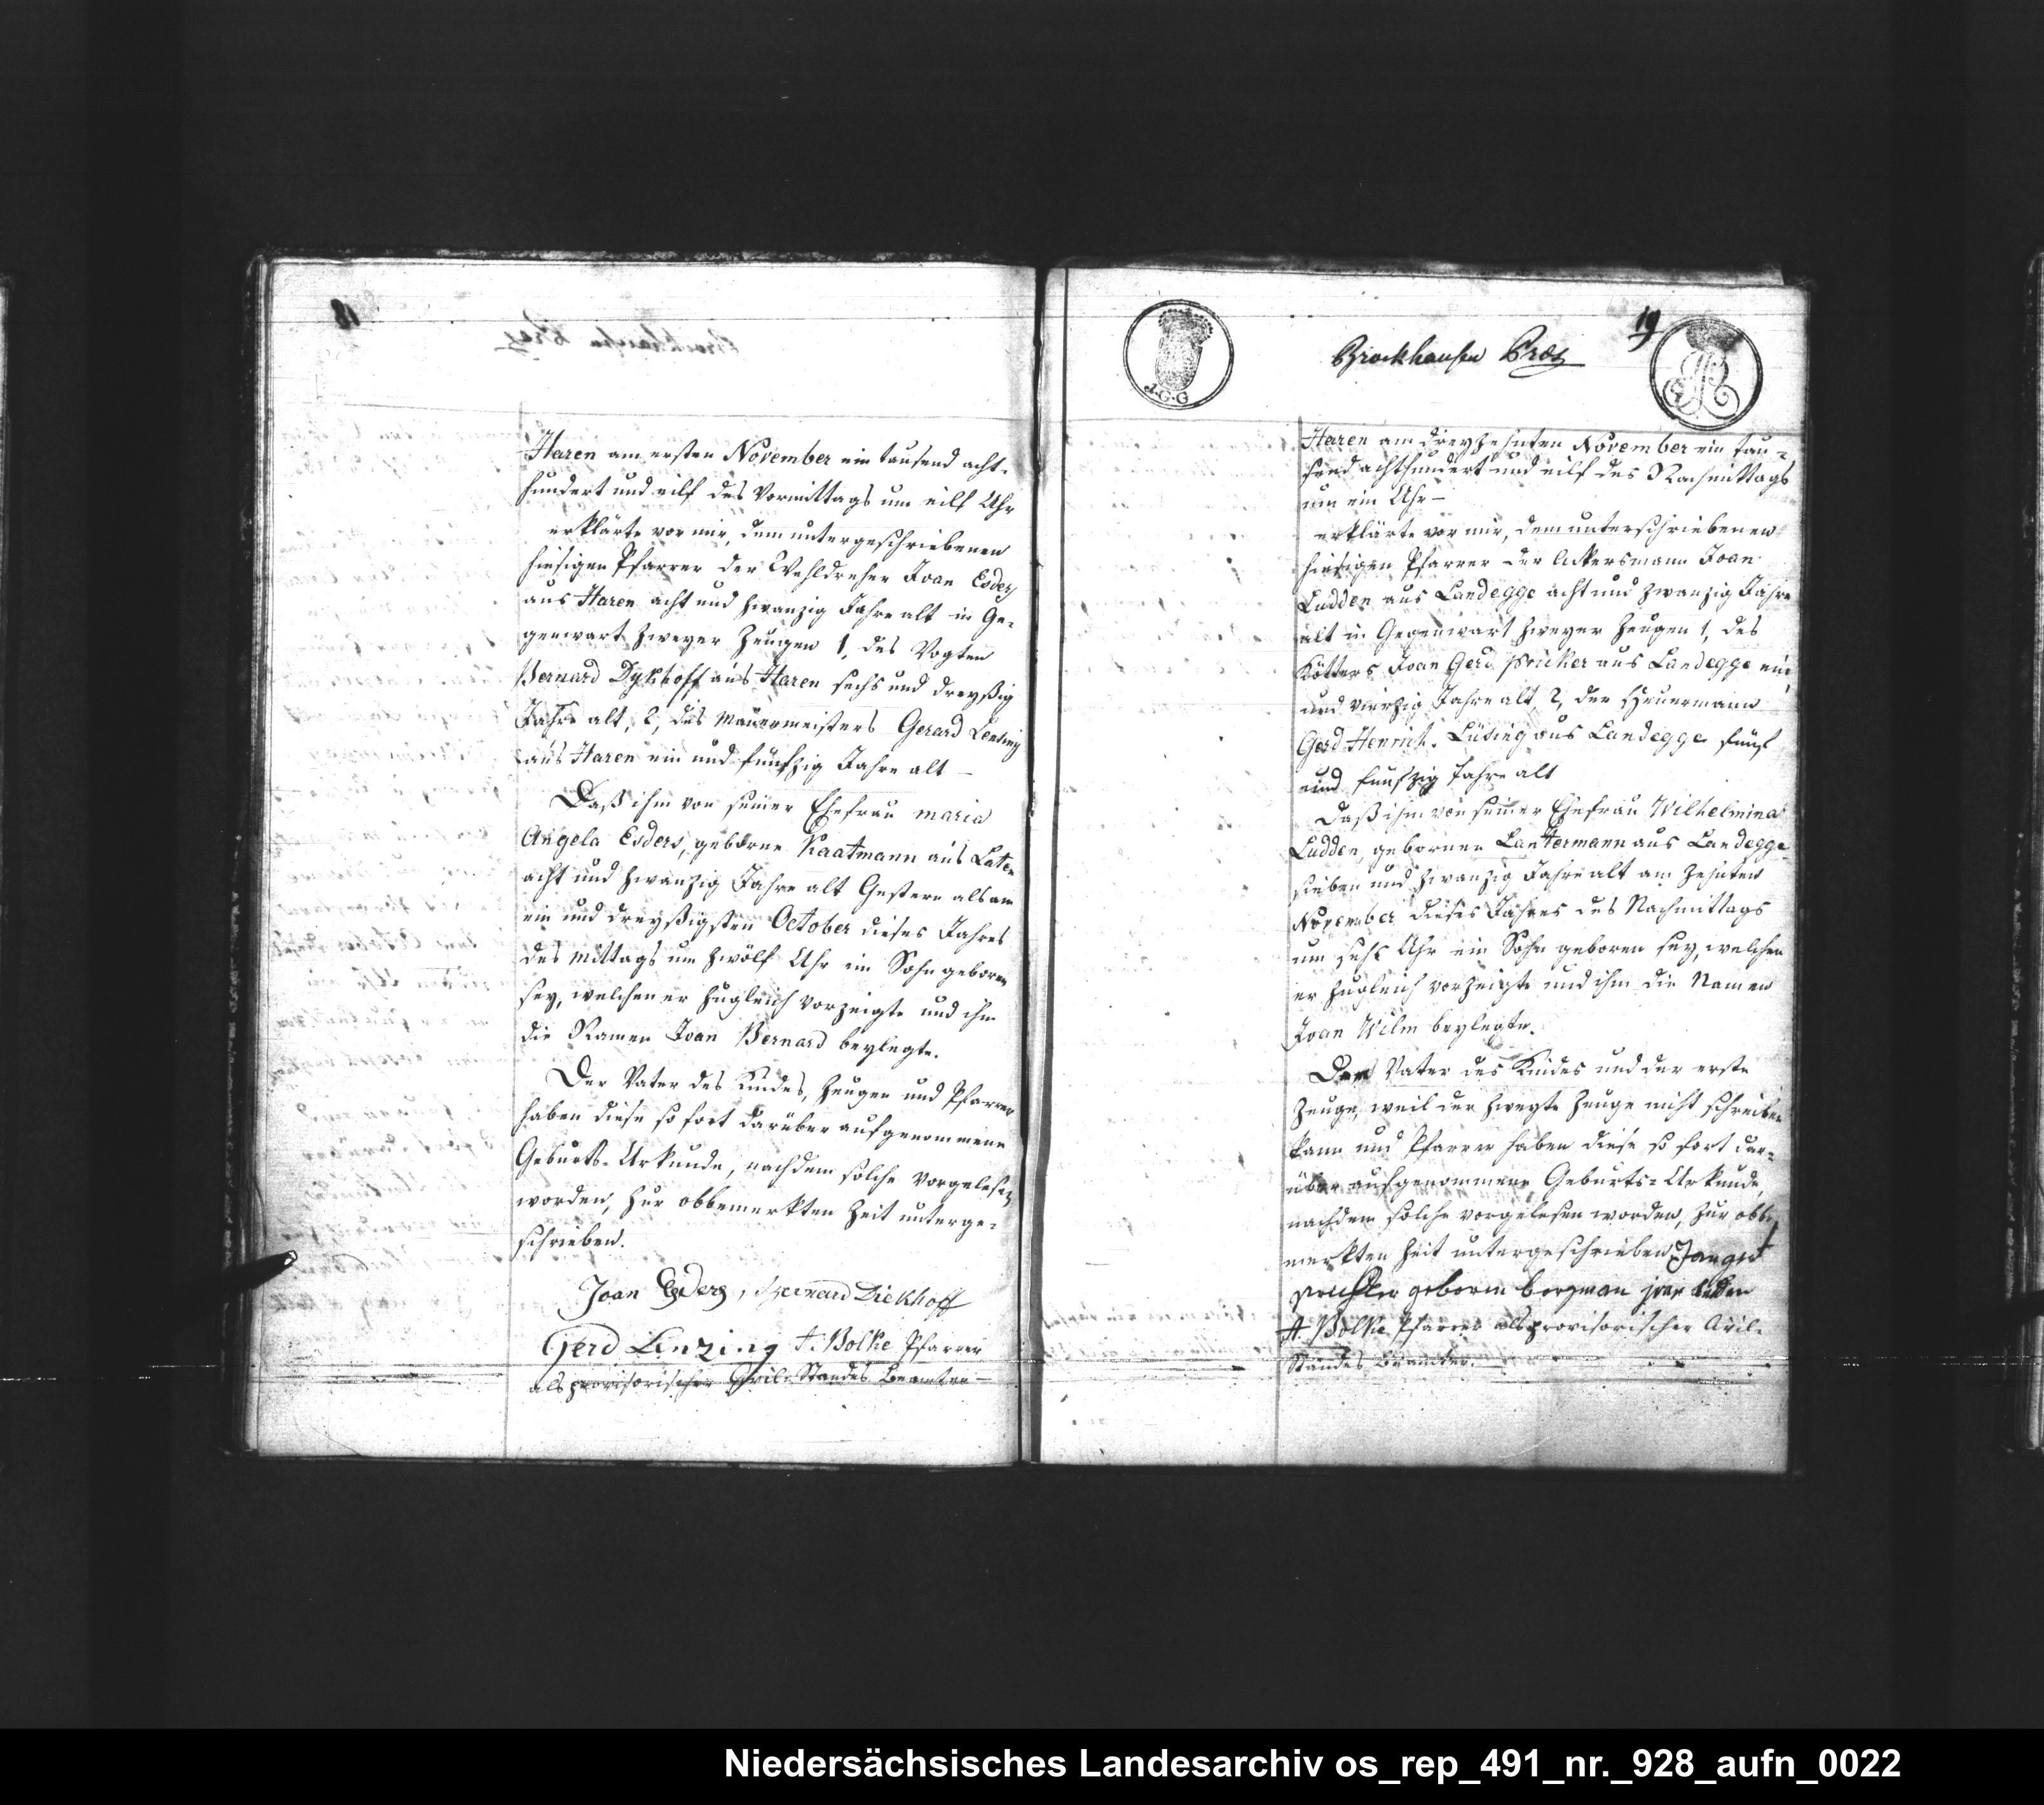 18
Haren am ersten November ein tausend acht-
hundert und eilf des Vormittags um eilf Uhr
erklärte vor mir, dem untergeschriebenen
hiesigen Pfarrer der Joan Esders
aus Haren acht und zwanzig Jahre alt in Ge-
genwart zweyer Zeugen 1, des Vogten
Bernard Dykhoff aus Haren sechs und dreyßig
Jahre alt, 2, des Mauermeisters Gerard Lensing
aus Haren ein und fünfzig Jahre alt –
Daß ihm von seiner Ehefrau maria
Angela Esders, geborne Kaatmann aus Laten
acht und zwanzig Jahre alt Gestern als am
ein und dreyßigsten October dieses Jahres
des mittags um zwölf Uhr ein Sohn geboren
sey, welchen er zugleich vorzeigte und ihm
die Namen Joan Bernard beylegte.
Der Vater des Kindes, Zeugen und Pfarrer
haben diese so fort darüber aufgenommene
Geburts-Urkunde, nachdem solche vorgelesen
worden, zur obbemerkten Zeit unterge-
schrieben.
Joan Esders, Bernard Diekhoff
Gerd Lenzing A. Bolke Pfarrer
als provisorischer Civil-Standes Beamter –
19
Brockhausen Præs
A.G.G
Haren am dreyzehnten November ein tau-
send achthundert und eilf des Nachmittags
um ein Uhr –
erklärte vor mir, dem unterschriebenen
hiesigen Pfarrer der Ackersmann Joan
Ludden aus Landegge acht und zwanzig Jahre
alt in Gegenwart zweyer Zeugen 1, des
Kötters Joan Gerd Pricker aus Landegge ein
und vierzig Jahre alt, 2, der Heuermann
Gerd Henrich Lüsing aus Landegge fünf
und fünfzig Jahre alt
Daß ihm von seiner Ehefrau Wilhelmina
Ludden, gebornen Lantermann aus Landegge
sieben und zwanzig Jahre alt am zehnten
November dieses Jahres des Nachmittags
um sechs Uhr ein Sohn geboren sey, welchen
er zugleich vorzeigte und ihm die Namen
Joan Wilm beylegte.
Der Vater des Kindes und der erste
Zeuge, weil der zweyte Zeuge nicht schreiben
kann und Pfarrer haben diese so fort dar-
über aufgenommene Geburts-Urkunde,
nachdem solche vorgelesen worden, zur obbe
merkten Zeit untergeschrieben Jan gerd
geboren bergman jan ludden
A. Bolke Pfarrer als provisorischer Civil-
Standes Beamter.
Niedersächsisches Landesarchiv os_rep_491_nr._928_aufn_0022